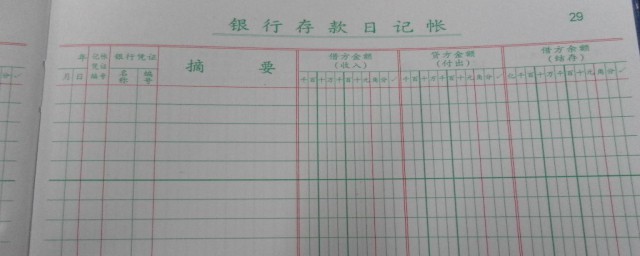 银行存款日记帐
29
年 记帐凭证编号 银行凭证 摘要 借方金额(收入) 贷方金额(付出) 借方余额(结存)
月 日 名称 编号 千百十万千百十元角分✓ 千百十万千百十元角分✓ 亿千百十万千百十元角分✓
分✓